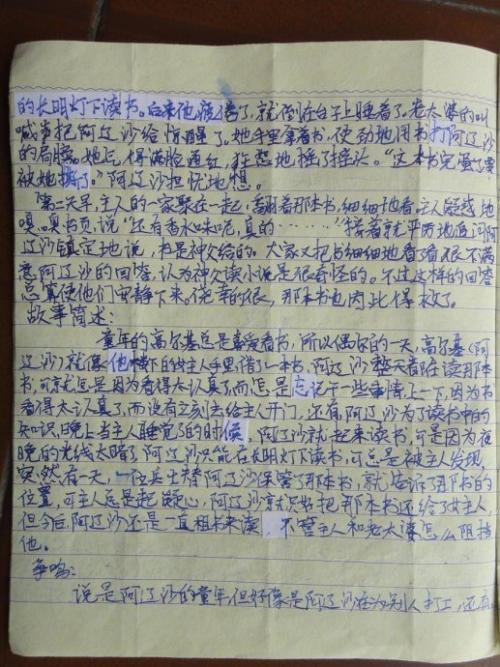 的长明灯下读书。后来他疲倦了，就倒在台子上睡着了。老太婆的叫
喊声把阿辽沙给惊醒了。她手里拿着书，使劲地用书打阿辽沙
的肩膀。她气得满脸通红，狂怒地摇了摇头。“这本书完蛋了要
被她撕了。”阿辽沙担忧地想。
第二天早，主人的一家聚在一起，翻着那本书，细细地看。主人疑惑地
嗅嗅书页说“还有香水味呢，真的……”接着就平静地追问阿
辽沙镇定地说，书是神父给的。大家又把书细细地看了看，很不满
意阿辽沙的回答，认为神父读小说是很奇怪的。不过这样的回答
总算使他们安静下来。侥幸的很，那本书也因此得救了。
故事简述：
童年的高尔基总是喜爱看书，所以偶尔的一天，高尔基（阿
辽沙）就像他楼下的女主人手里借了一本书，阿辽沙整天都在读那本
书，可京尤总是因为看得太认真了，而总是忘记干一些事情，上一下，因为书
看得太认真了，而没有立刻去给主人开门，还有，阿辽沙为了读书中的
知识，晚上当主人睡觉了的时候，阿辽沙就起来读书，可是因为夜
晚的光线太暗了，阿辽沙只能在长明灯下读书，可总是被主人发现，
突然有一天，一位兵士替阿辽沙保管了那本书，就告诉了那书的
位置，可主人总是起疑心，阿辽沙就只好把那本书还给了女主人，
但今后，阿辽沙还是一直租书来读，不管主人和老太婆怎么阻挡
他。
争鸣：
说是阿辽沙的童年，但好像是阿辽沙在为别人打工，还有